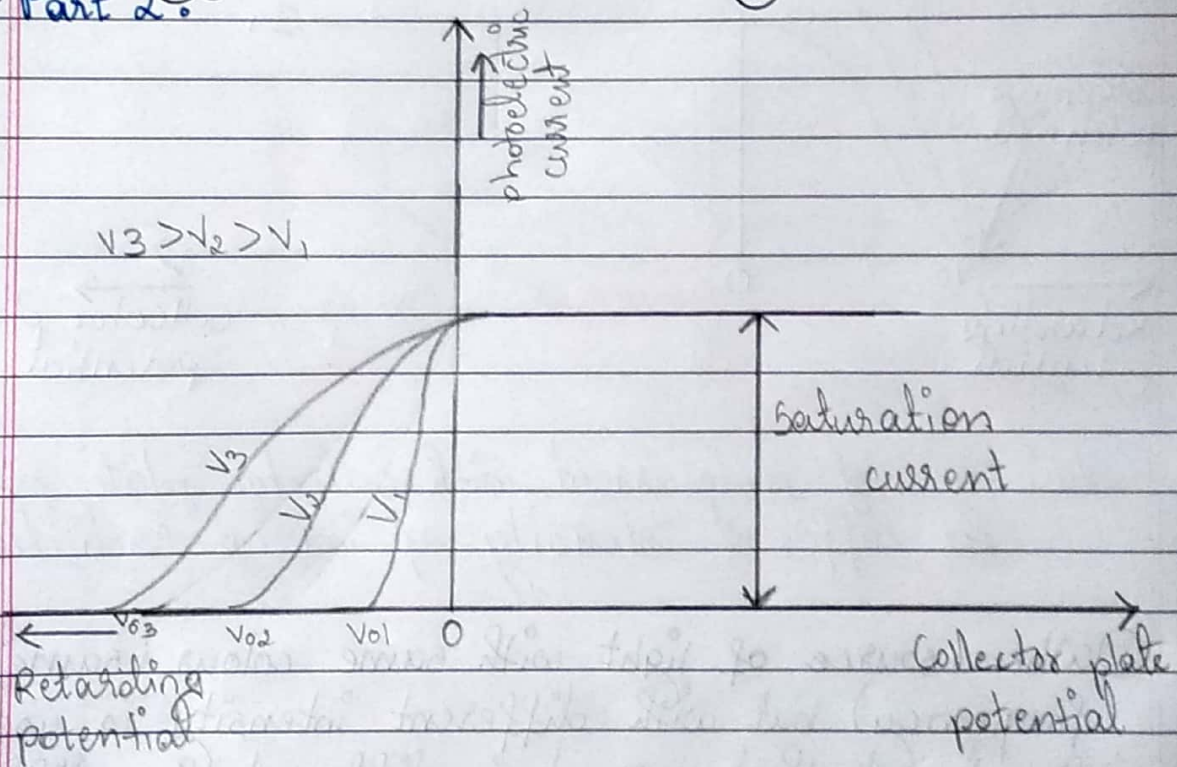 Part 2:
photoelectric
current
V3 > V2 > V1
V3
V2
V1
saturation
current
V03
V02
V01
O
Retarding
potential
Collector plate
potential